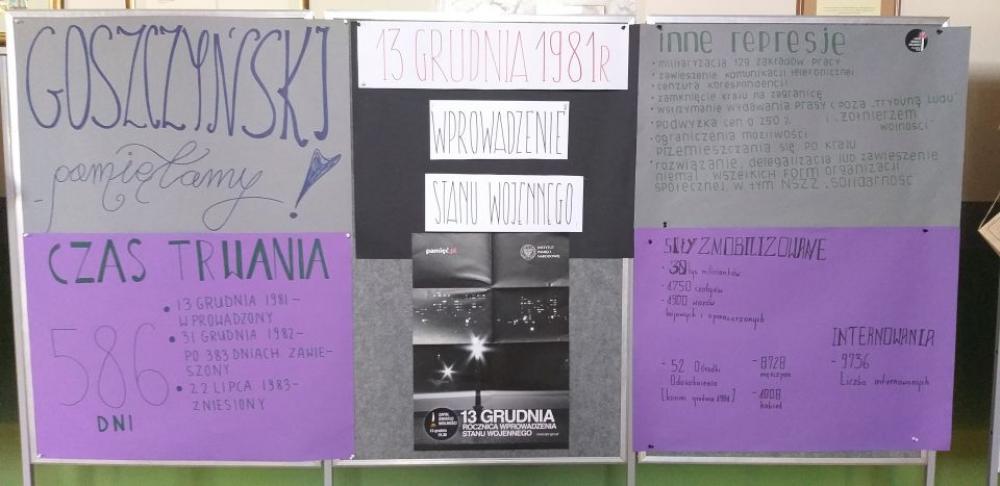 GOSZCZYŃSKI
pamiętamy!
CZAS TRWANIA
586
DNI
• 13 GRUDNIA 1981 -
WPROWADZONY
• 31 GRUDNIA 1982 -
PO 383 DNIACH ZAWIE-
SZONY
• 22 LIPCA 1983 -
ZNIESIONY
13 GRUDNIA 1981R
WPROWADZENIE
STANU WOJENNEGO
pamięć.pl
INSTYTUT
PAMIĘCI
NARODOWEJ
ZAPAL
ŚWIATŁO
WOLNOŚCI
13 grudnia
19.30
13 GRUDNIA
ROCZNICA WPROWADZENIA
STANU WOJENNEGO
inne represje
• militaryzacja 129 zakładów pracy
• zawieszenie komunikacji telefonicznej
• cenzura korespondencji
• zamknięcie kraju na zagranicę
• wstrzymanie wydawania prasy (poza „Trybuną Ludu"
i „Żołnierzem
wolności"
• podwyżka cen o 250 %
• ograniczenia możliwości
przemieszczania się po kraju
• rozwiązanie, delegalizacja lub zawieszenie
niemal wszelkich form organizacji
społecznej, w tym NSZZ „Solidarność
SIŁY ZMOBILIZOWANE
- 30 tys milicjantów
- 1750 czołgów
- 1900 wozów
bojowych i opancerzonych
INTERNOWANIA
- 52 Ośrodki
Odosobnienia
[koniec grudnia 1981]
- 8728
mężczyzn
- 1008
kobiet
- 9736
Liczba internowanych